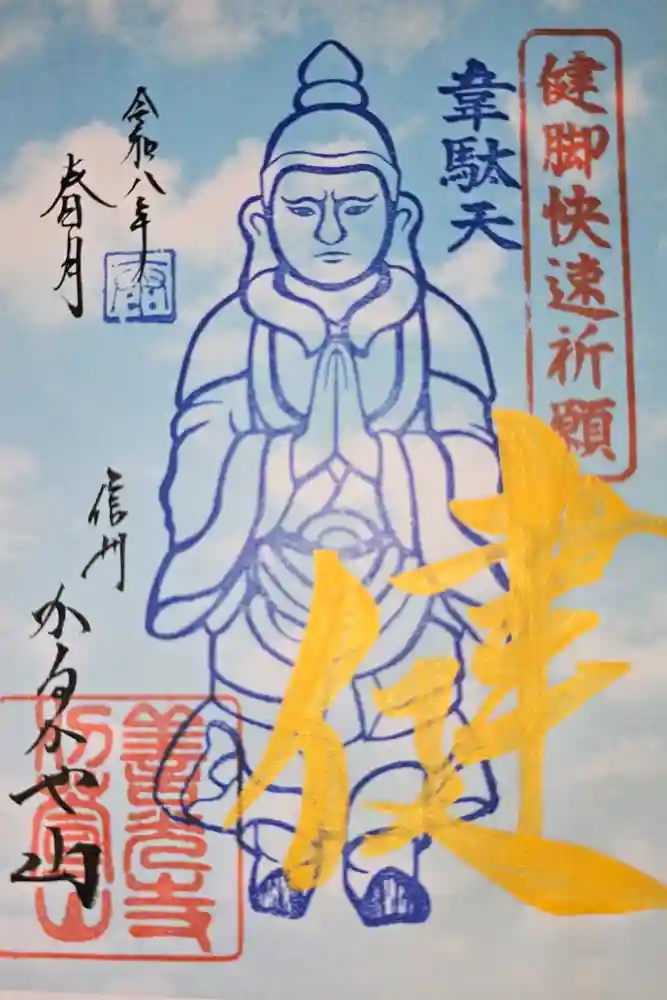 健脚快速祈願
韋駄天
健
令和八年
春月
信州
かるかや山
善光寺